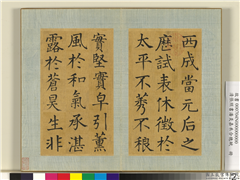 西成當元后之
歷試表休徵於
太平不莠不稂
實堅實皁引薰
風於和氣承湛
露於蒼昊生非